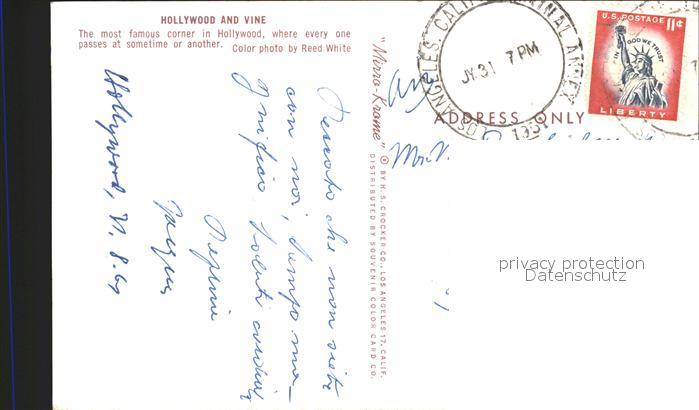 HOLLYWOOD AND VINE
The most famous corner in Hollywood, where every one
passes at sometime or another. Color photo by Reed White
Hollywood, 31.8.61
Peccato che non siete
con noi, tempo ma-
gnifico. Saluti cordiali
"Mirro-Krome" © BY H. S. CROCKER CO., LOS ANGELES 17, CALIF.
DISTRIBUTED BY SOUVENIR COLOR CARD CO.
LOS ANGELES, CALIF. TERMINAL ANNEX
7 PM
JY 31
U.S. POSTAGE 11¢
IN GOD WE TRUST
LIBERTY
ADDRESS ONLY
privacy protection
Datenschutz